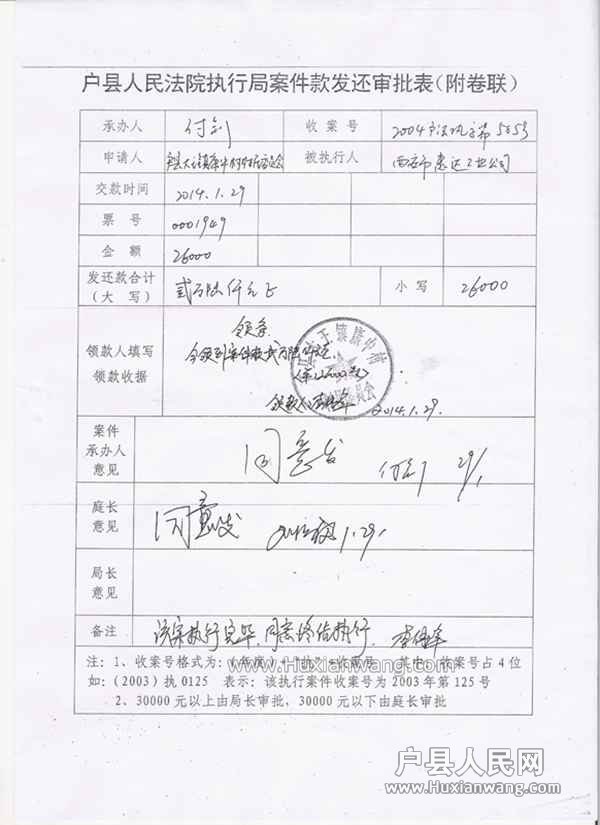 户县人民法院执行局案件款发还审批表(附卷联)
承办人 付剑 收案号 2004
申请人 被执行人 西安市惠达工业公司
交款时间 2014.1.29
票号 0001949
金额 26000
发还款合计(大写) 贰万陆仟元正 小写 26000
领款人填写领款收据
领条
今领到案件款贰万陆仟元
领款人 2014.1.29.
案件承办人意见 同意发 付剑 29/1
庭长意见 同意发 1.29.
局长意见
备注 该案执行完毕,同意终结执行.
注:1、收案号格式为:(年度)+"执"+收案号 其中:收案号占4位
如:(2003)执0125 表示:该执行案件收案号为2003年第125号
2、30000元以上由局长审批,30000元以下由庭长审批
www.Huxianwang.com
户县人民网
www.Huxianwang.com